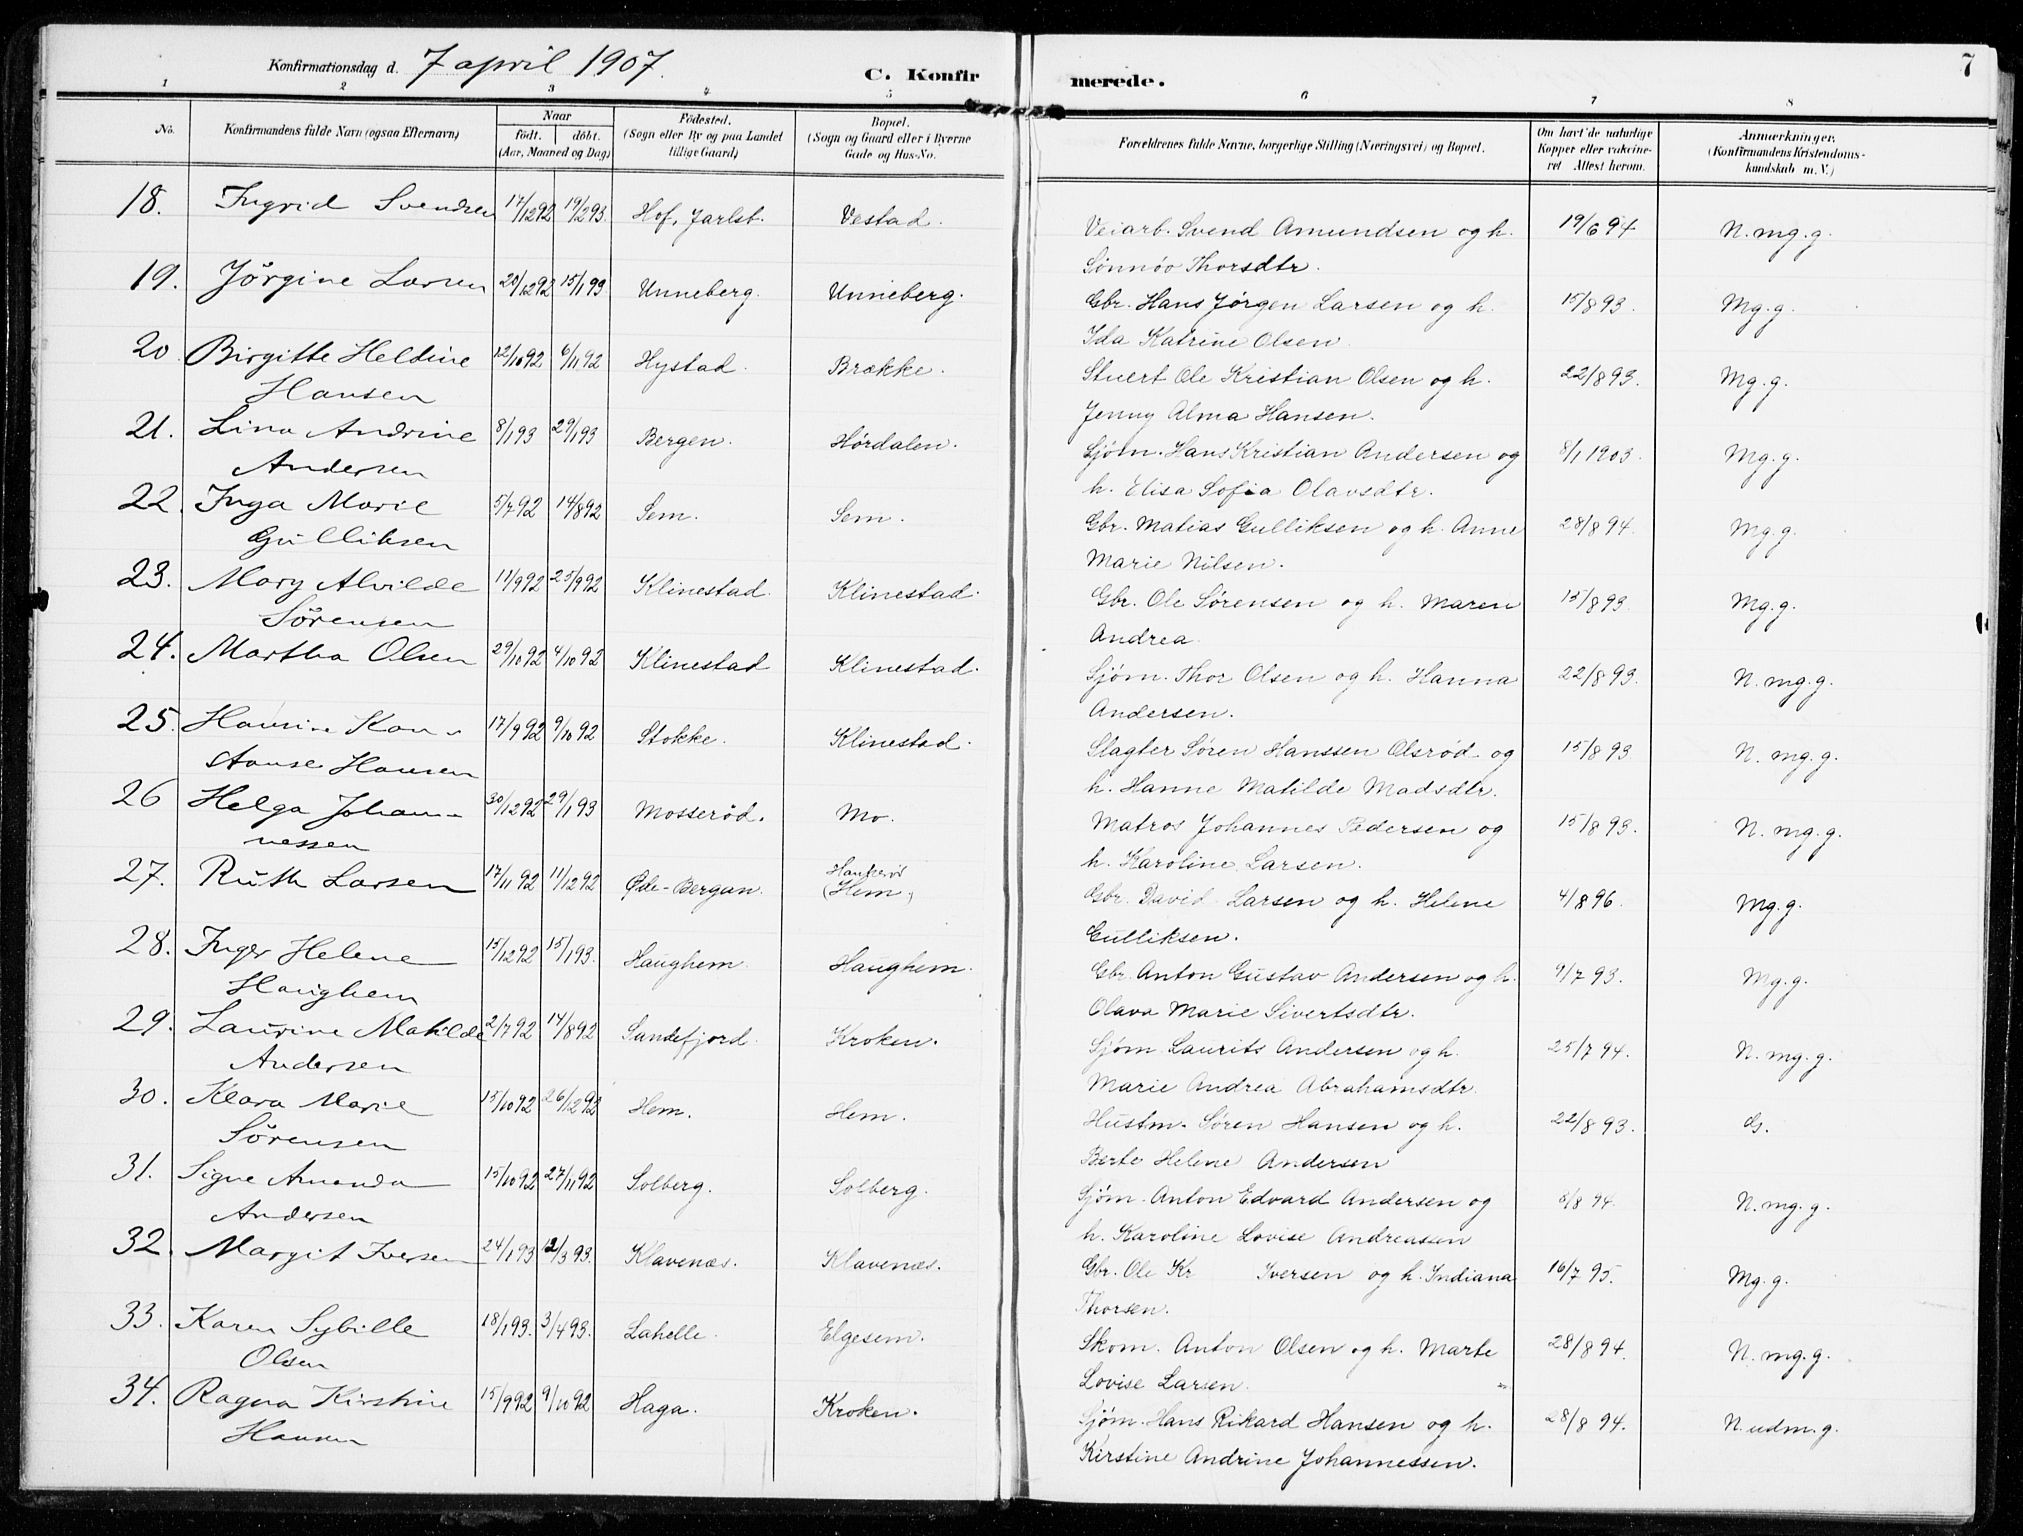 Konfirmationsdag d. 7 april 1907.
C. Konfirmerede.
7
1 2 3 4 5 6 7 8
No. Konfirmandens fulde Navn (ogsaa Efternavn) Naar födt. döbt. (Aar, Maaned og Dag) Födested. (Sogn eller By og paa Landet tillige Gaard) Bopæl. (Sogn og Gaard eller i Byerne Gade og Hus-No. Forældrenes fulde Navne, borgerlige Stilling (Næringsvei) og Bopæl. Om havt de naturlige Kopper eller vakcineret Attest herom. Anmærkninger. (Konfirmandens Kristendomskundskab m. V.)
18. Ingrid Svendsen 17/12 92 19/2 93. Hof, Jarlsb. Vestad. Veiarb. Svend Amundsen og h. 19/6 94 N. mg. g.
Sønnøv Thorsdtr.
19. Jörgine Larsen 20/12 92 15/1 93 Unneberg. Unneberg. Gbr. Hans Jørgen Larsen og h. 15/8 93. Mg. g.
Ida Katrine Olsen.
20. Birgitte Heldine 12/10 92 6/11 92 Hystad. Brække. Stuert Ole Kristian Olsen og h. 22/8 93. Mg. g.
Hansen Jenny Alma Hansen.
21. Lina Andrine 8/1 93 29/1 93 Bergen. Hørdalen. Sjøm. Hans Kristian Andersen og 8/1 1903. Mg. g.
Andersen h. Elisa Sofia Olavsdtr.
22. Inga Marie 5/7 92 14/8 92 Sem. Sem. Gbr. Matias Gulliksen og h. Anne 28/8 94. Mg. g.
Gulliksen Marie Nilsen.
23. Mary Alvilde 11/9 92 25/9 92 Klinestad. Klinestad. Gbr. Ole Sørensen og h. Maren 15/8 93. Mg. g.
Sörensen Andrea.
24. Martha Olsen 29/10 92 4/10 92 Klinestad Klinestad. Sjøm. Thor Olsen og h. Hanna 22/8 93. N. mg. g.
Andersen.
25. Hansine Kon- 17/9 92 9/10 92 Stokke. Klinestad. Slagter Søren Hanssen Olsrød og 15/8 93 N. mg. g.
stanse Hansen h. Hanne Matilde Madsdtr.
26 Helga Johan- 30/12 92 29/1 93 Mosserød. Mo. Matros Johannes Pedersen og 15/8 93. N. mg. g.
nessen h. Karoline Larsen.
27. Ruth Larsen 17/11 92 11/12 92 Øde-Bergan. (Hem) Gbr. David Larsen og h. Helene 4/8 96. Mg. g.
Gulliksen.
28. Inger Helene 15/12 92 15/1 93. Haughem. Haughem. Gbr. Anton Gustav Andersen og h. 9/7 93. Mg. g.
Haughem Olava Marie Sivertsdtr.
29. Laurine Mathilde 2/7 92 14/8 92 Sandefjord. Kroken. Sjøm. Laurits Andersen og h. 25/7 94. N. mg. g.
Andersen Marie Andrea Abrahamsdtr.
30. Klara Marie 15/10 92 26/12 92 Hem. Hem. Hustm. Søren Hansen og h. 22/8 93. G.
Sörensen Berte Helene Andersen
31. Signe Amanda 15/10 92 27/11 92 Solberg. Solberg. Sjøm. Anton Edvard Andersen og 8/8 94. N. mg. g.
Andersen h. Karoline Lovise Andreassen
32. Margit Iversen 24/1 93 12/3 93. Klavenæs. Klavenæs. Gbr. Ole Kr Iversen og h. Indiana 16/7 95. Mg. g.
Thorsen.
33. Karen Sybille 18/1 93. 3/4 93. Lahelle. Elgesem. Skom. Anton Olsen og h. Marte 28/8 94. N. mg. g.
Olsen Lovise Larsen.
34. Ragna Kirstine 15/9 92 9/10 92 Haga. Kroken. Sjøm. Hans Rikard Hansen og h. 28/8 94. N. udm. g.
Hansen Kirstine Andrine Johannessen.